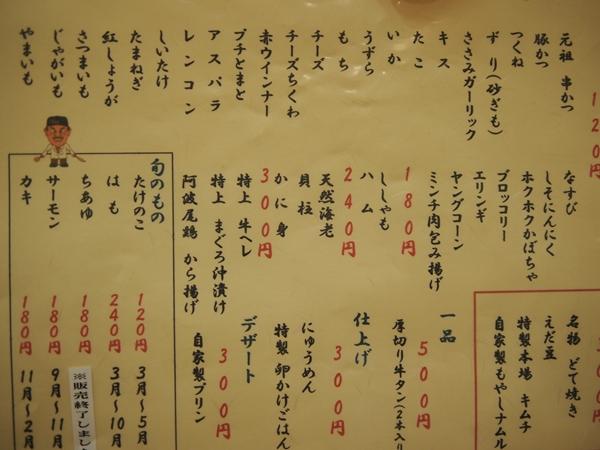 元祖 串かつ
豚かつ
つくね
ずり(砂ぎも)
ささみガーリック
キス
たこ
いか
うずら
もち
チーズ
チーズちくわ
赤ウインナー
プチとまと
アスパラ
レンコン
しいたけ
たまねぎ
紅しょうが
さつまいも
じゃがいも
やまいも
120円
なすび
しそにんにく
ホクホクかぼちゃ
ブロッコリー
エリンギ
ヤングコーン
ミンチ肉包み揚げ
180円
ししゃも
ハム
240円
天然海老
貝柱
かに身
300円
特上 牛ヘレ
特上 まぐろ沖漬け
阿波尾鶏 から揚げ
旬のもの
たけのこ 120円 3月〜5月
はも 240円 3月〜10月
ちあゆ 180円
※販売終了しまし
サーモン 180円 9月〜11月
カキ 180円 11月〜2月
名物 どて焼き
えだ豆
特製本場 キムチ
自家製もやしナムル
一品
500円
厚切り牛タン(2本入り
仕上げ
300円
にゅうめん
特製 卵かけごはん
デザート
300円
自家製プリン